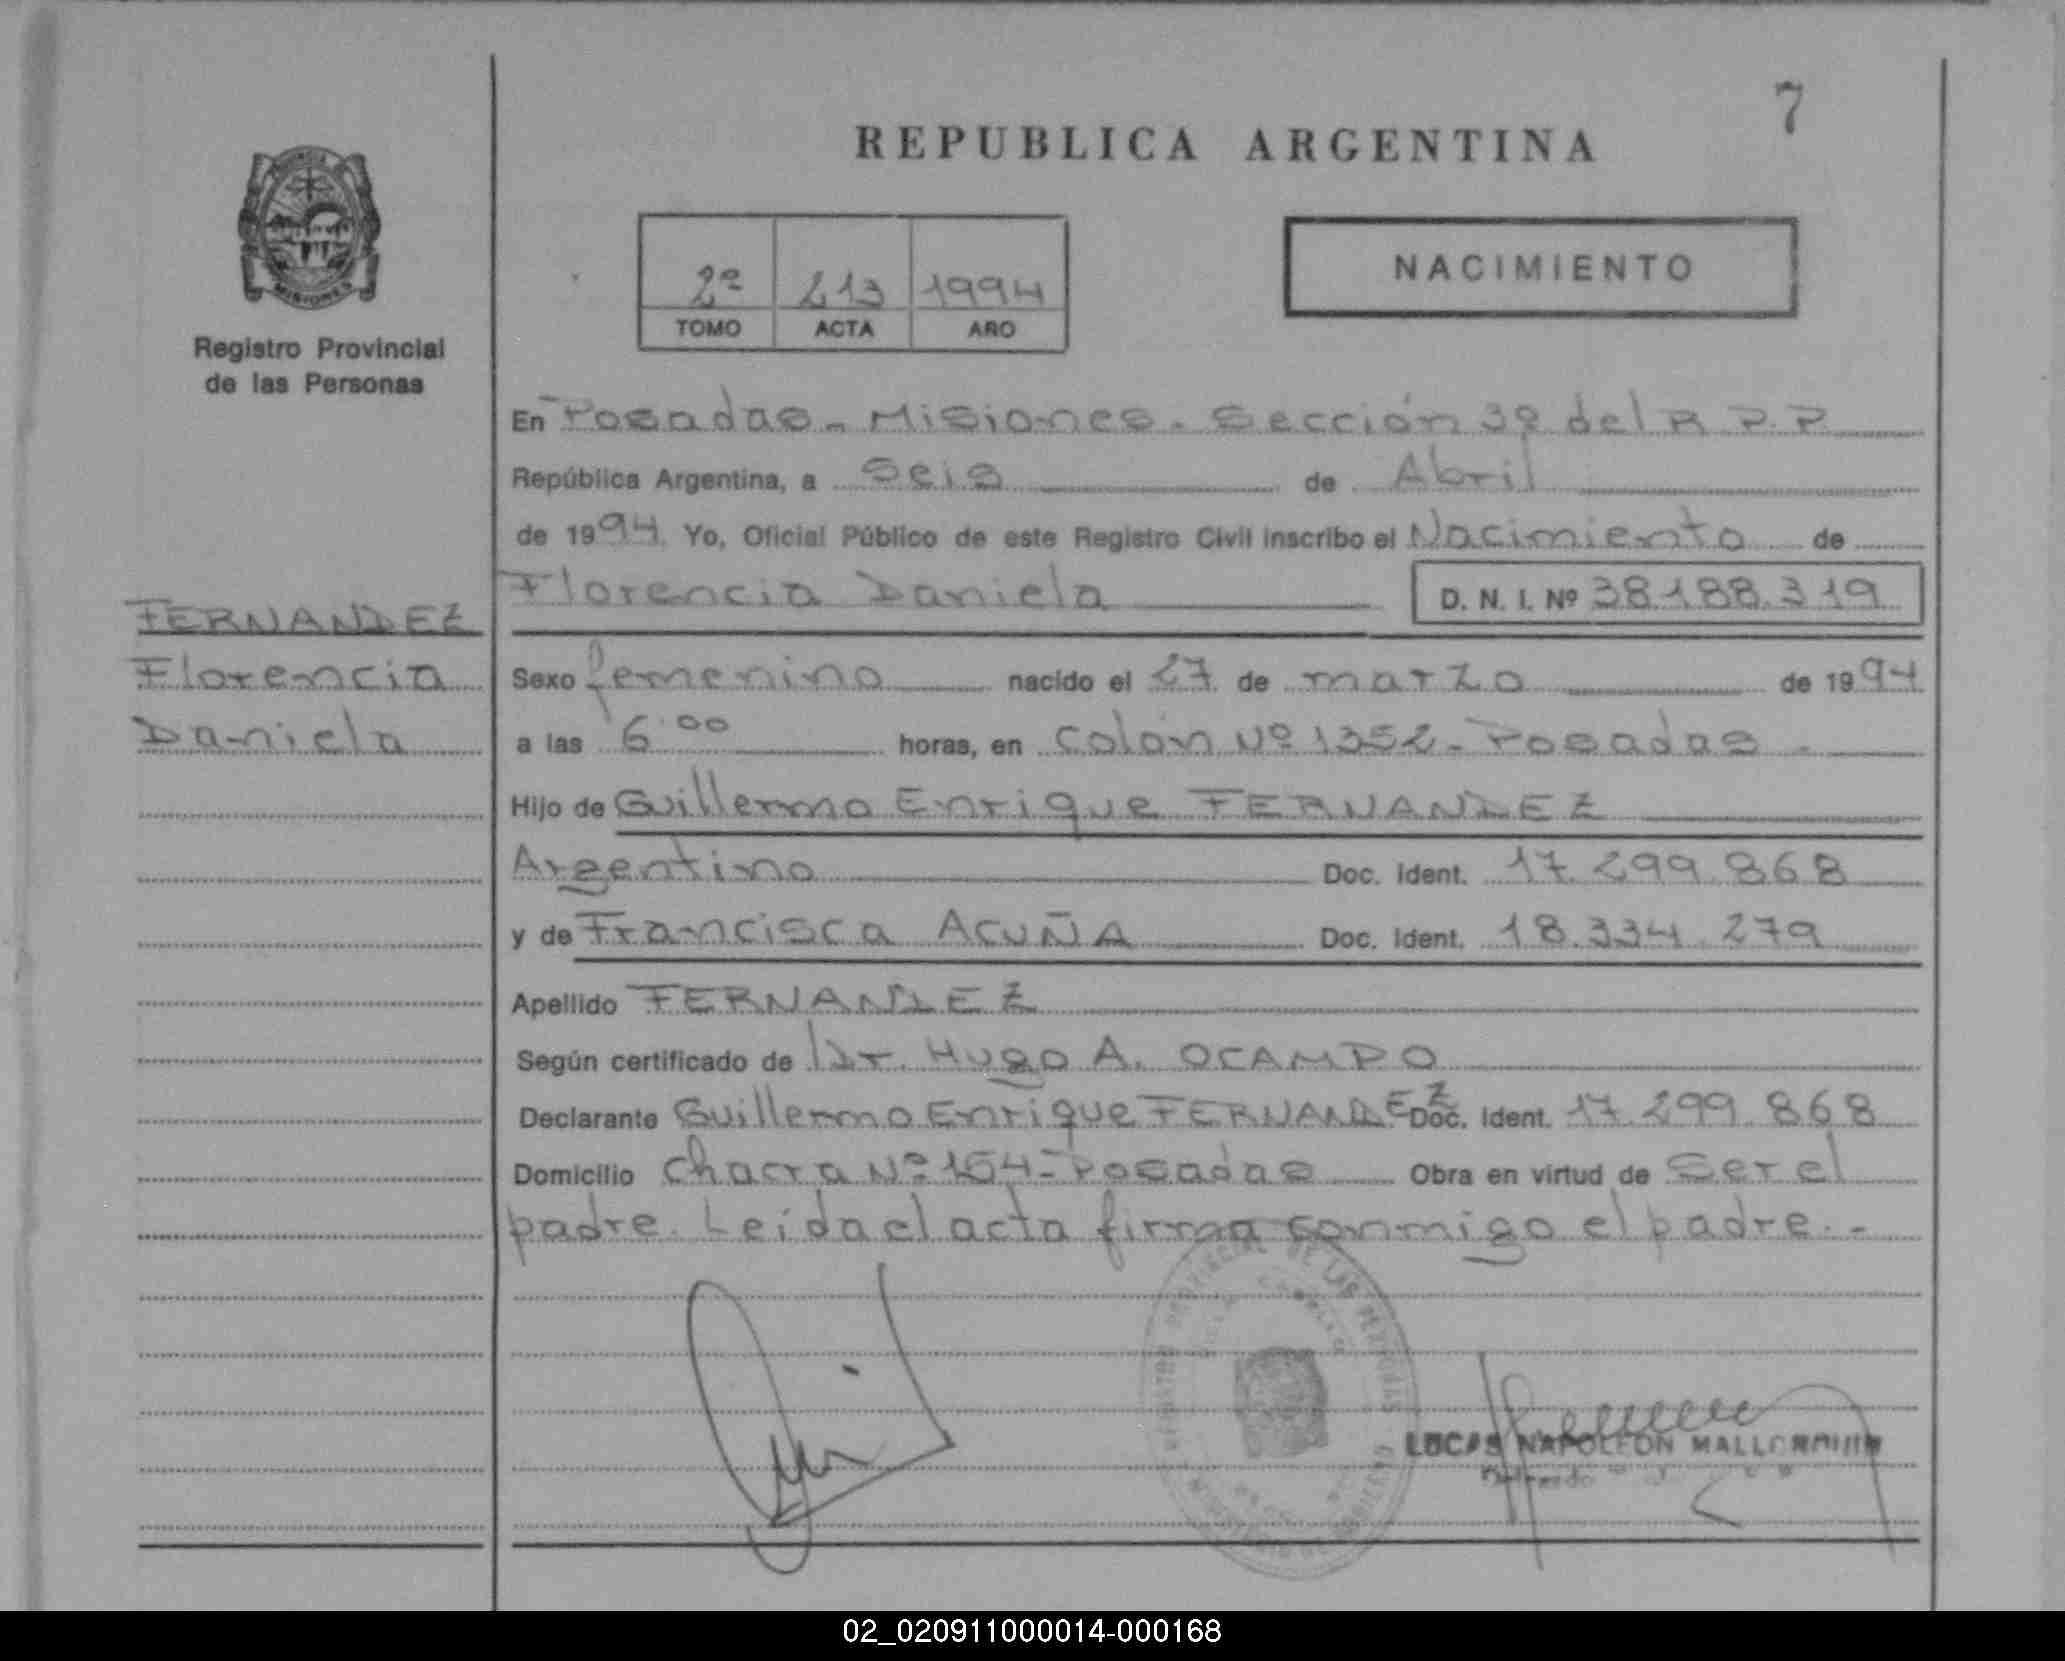 7
REPUBLICA ARGENTINA
MISIONES
Registro Provincial
de las Personas
2º 213 1994
TOMO ACTA AÑO
NACIMIENTO
En Posadas - Misiones - Sección 3º del R.P.P
República Argentina, a Seis de Abril
de 1994. Yo, Oficial Público de este Registro Civil inscribo el Nacimiento de
Florencia Daniela D. N. I. Nº 38.188.319
FERNANDEZ
Florencia
Daniela
Sexo femenino nacido el 27 de marzo de 1994
a las 6.00 horas, en Colón Nº 1352 - Posadas -
Hijo de Guillermo Enrique FERNANDEZ
Argentino Doc. Ident. 17.299.868
y de Francisca ACUÑA Doc. Ident. 18.334.279
Apellido FERNANDEZ
Según certificado de Dr. Hugo A. OCAMPO
Declarante Guillermo Enrique FERNANDEZ Doc. Ident. 17.299.868
Domicilio Chacra Nº 154 - Posadas Obra en virtud de Ser el
padre. Leída el acta firma conmigo el padre.-
REGISTRO PROVINCIAL DE LAS PERSONAS
LUCAS NAPOLEON MALLORQUIN
02_020911000014-000168